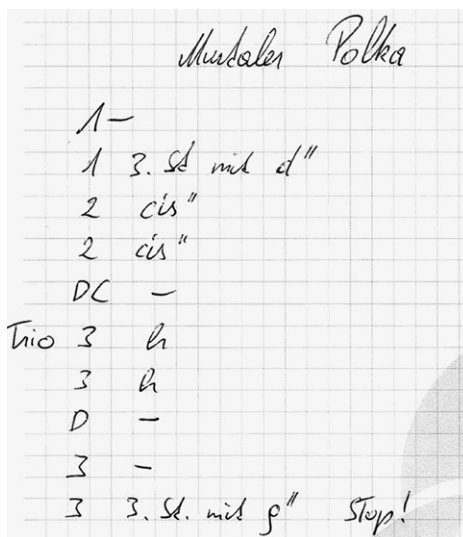 Murtaler Polka
1 –
1 3. St mit d"
2 cis"
2 cis"
DC –
Trio 3 h
3 h
D –
3 –
3 3. St. mit g" Stop!